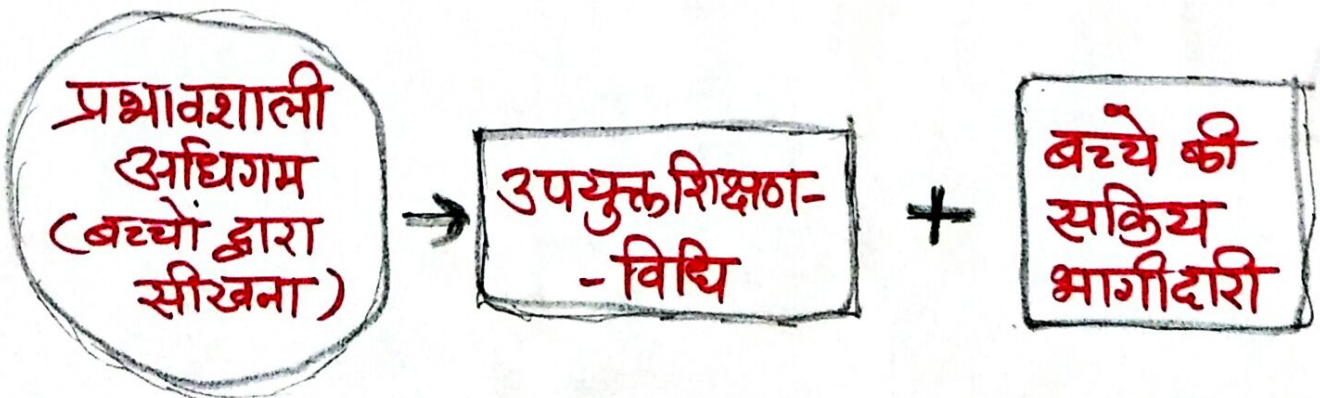 प्रभावशाली
अधिगम
(बच्चों द्वारा
सीखना)
→
उपयुक्त शिक्षण-
- विधि
+
बच्चे की
सक्रिय
भागीदारी